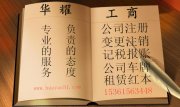 华耀
负责的态度
专业的服务
工商
公司注册
变更注销
记税报账
公司车牌
租赁红本
15361563448